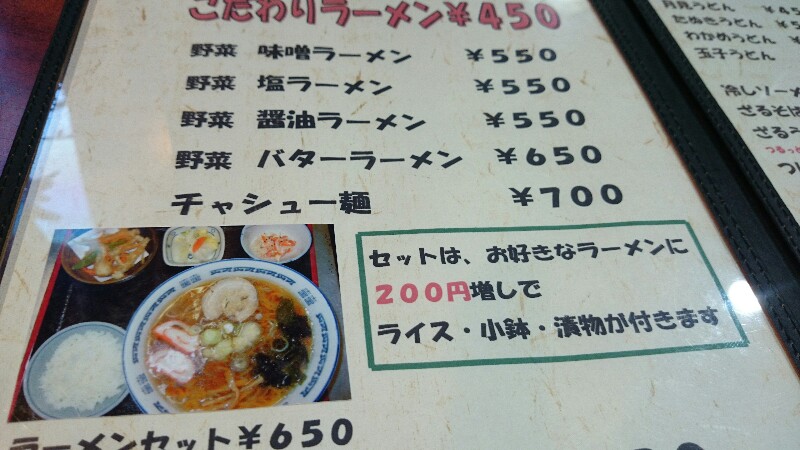 こだわりラーメン¥450
野菜 味噌ラーメン ¥550
野菜 塩ラーメン ¥550
野菜 醤油ラーメン ¥550
野菜 バターラーメン ¥650
チャシュー麺 ¥700
セットは、お好きなラーメンに
200円増しで
ライス・小鉢・漬物が付きます
ラーメンセット¥650
月見うどん ¥45
たぬきうどん ¥5
わかめうどん
玉子うどん
冷しソーメ
ざるそば
ざる
つるっ
つ